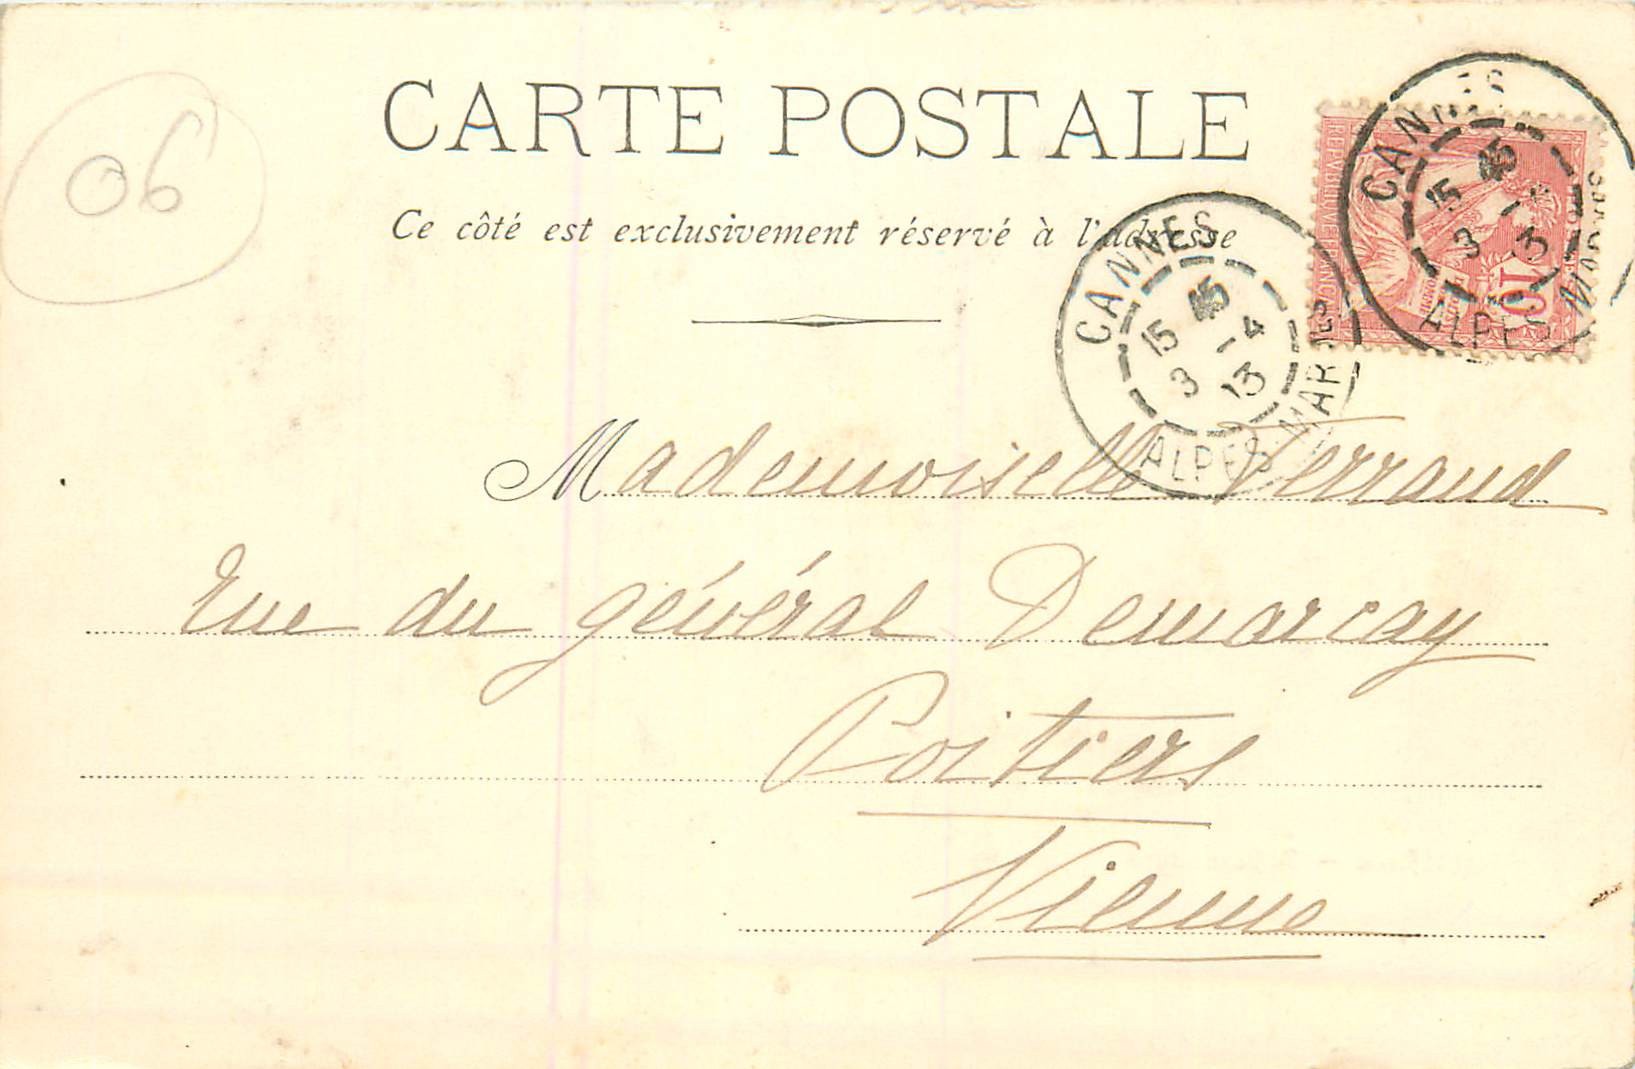 CARTE POSTALE
06
Ce côté est exclusivement réservé à l'adresse
CANNES
15 45
3 -4
13
ALPES-MARITIMES
CANNES
15 45
3 -4
13
ALPES MARITIMES
RÉPUBLIQUE FRANÇAISE
10
Mademoiselle Ferraud
Rue du général Demarcay
Poitiers
Vienne